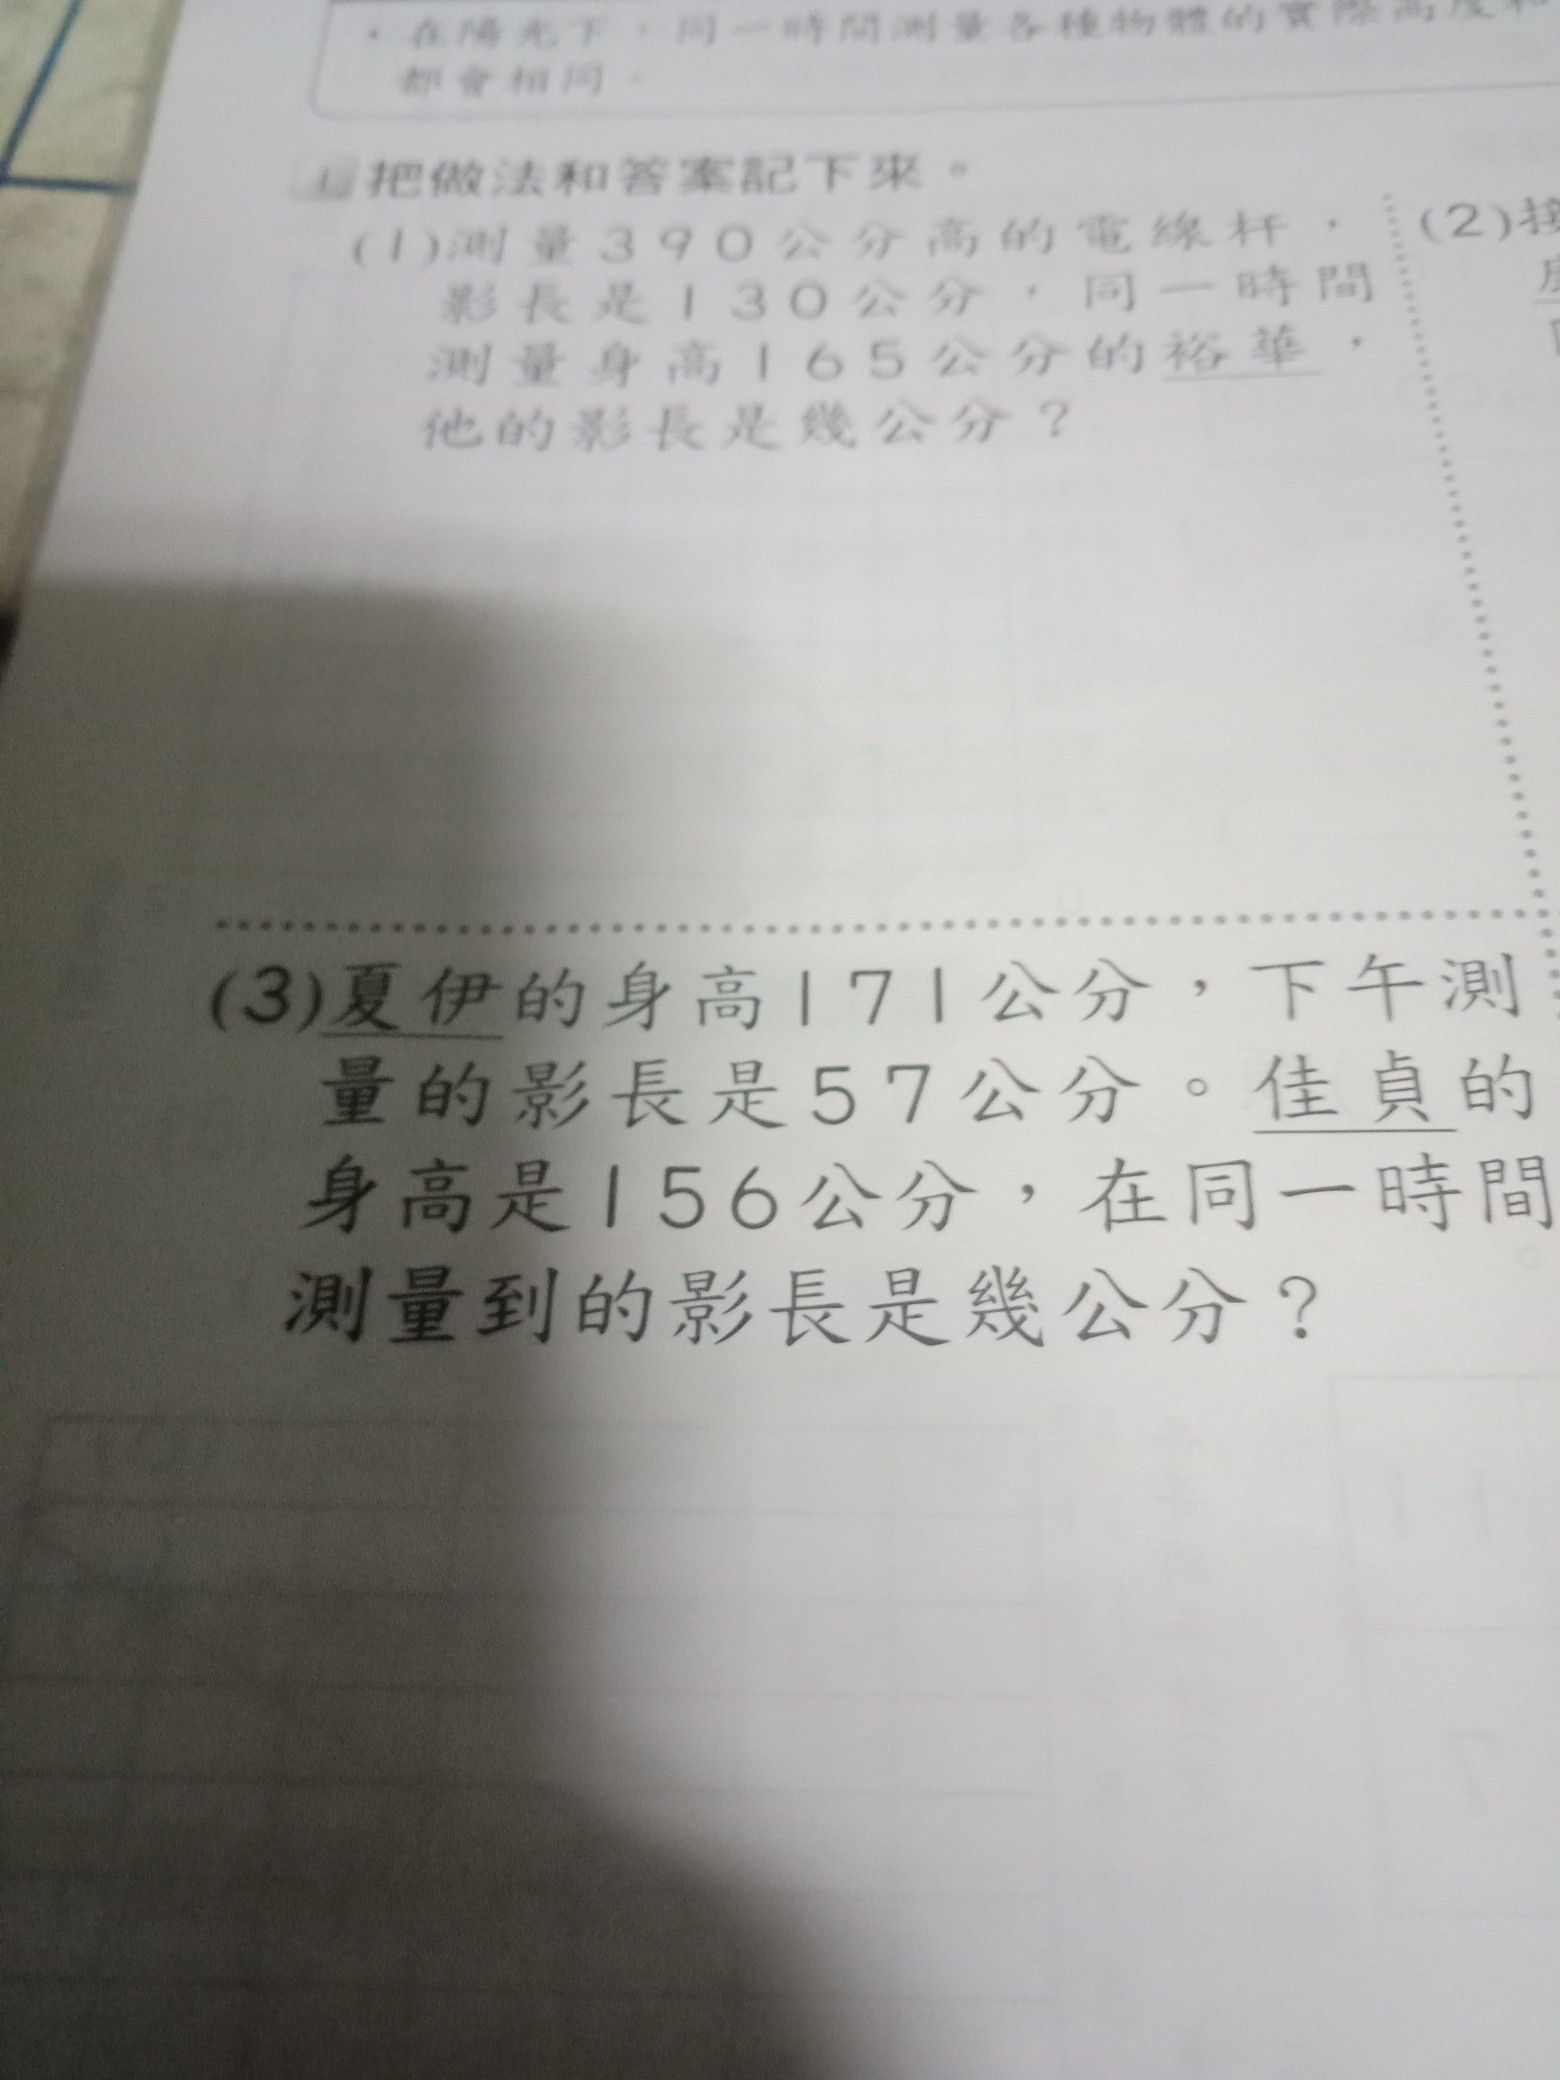 ・在陽光下，同一時間測量各種物體的實際高度和
都會相同。
1 把做法和答案記下來。
(1)測量390公分高的電線杆，
影長是130公分，同一時間
測量身高165公分的裕華，
他的影長是幾公分？
(2)接
(3)夏伊的身高171公分，下午測
量的影長是57公分。佳貞的
身高是156公分，在同一時間
測量到的影長是幾公分？